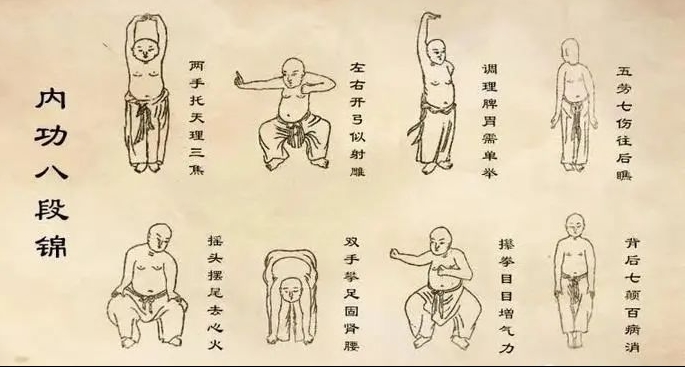 内功八段锦
两手托天理三焦
左右开弓似射雕
调理脾胃需单举
五劳七伤往后瞧
摇头摆尾去心火
双手攀足固肾腰
攥拳目目增气力
背后七颠百病消